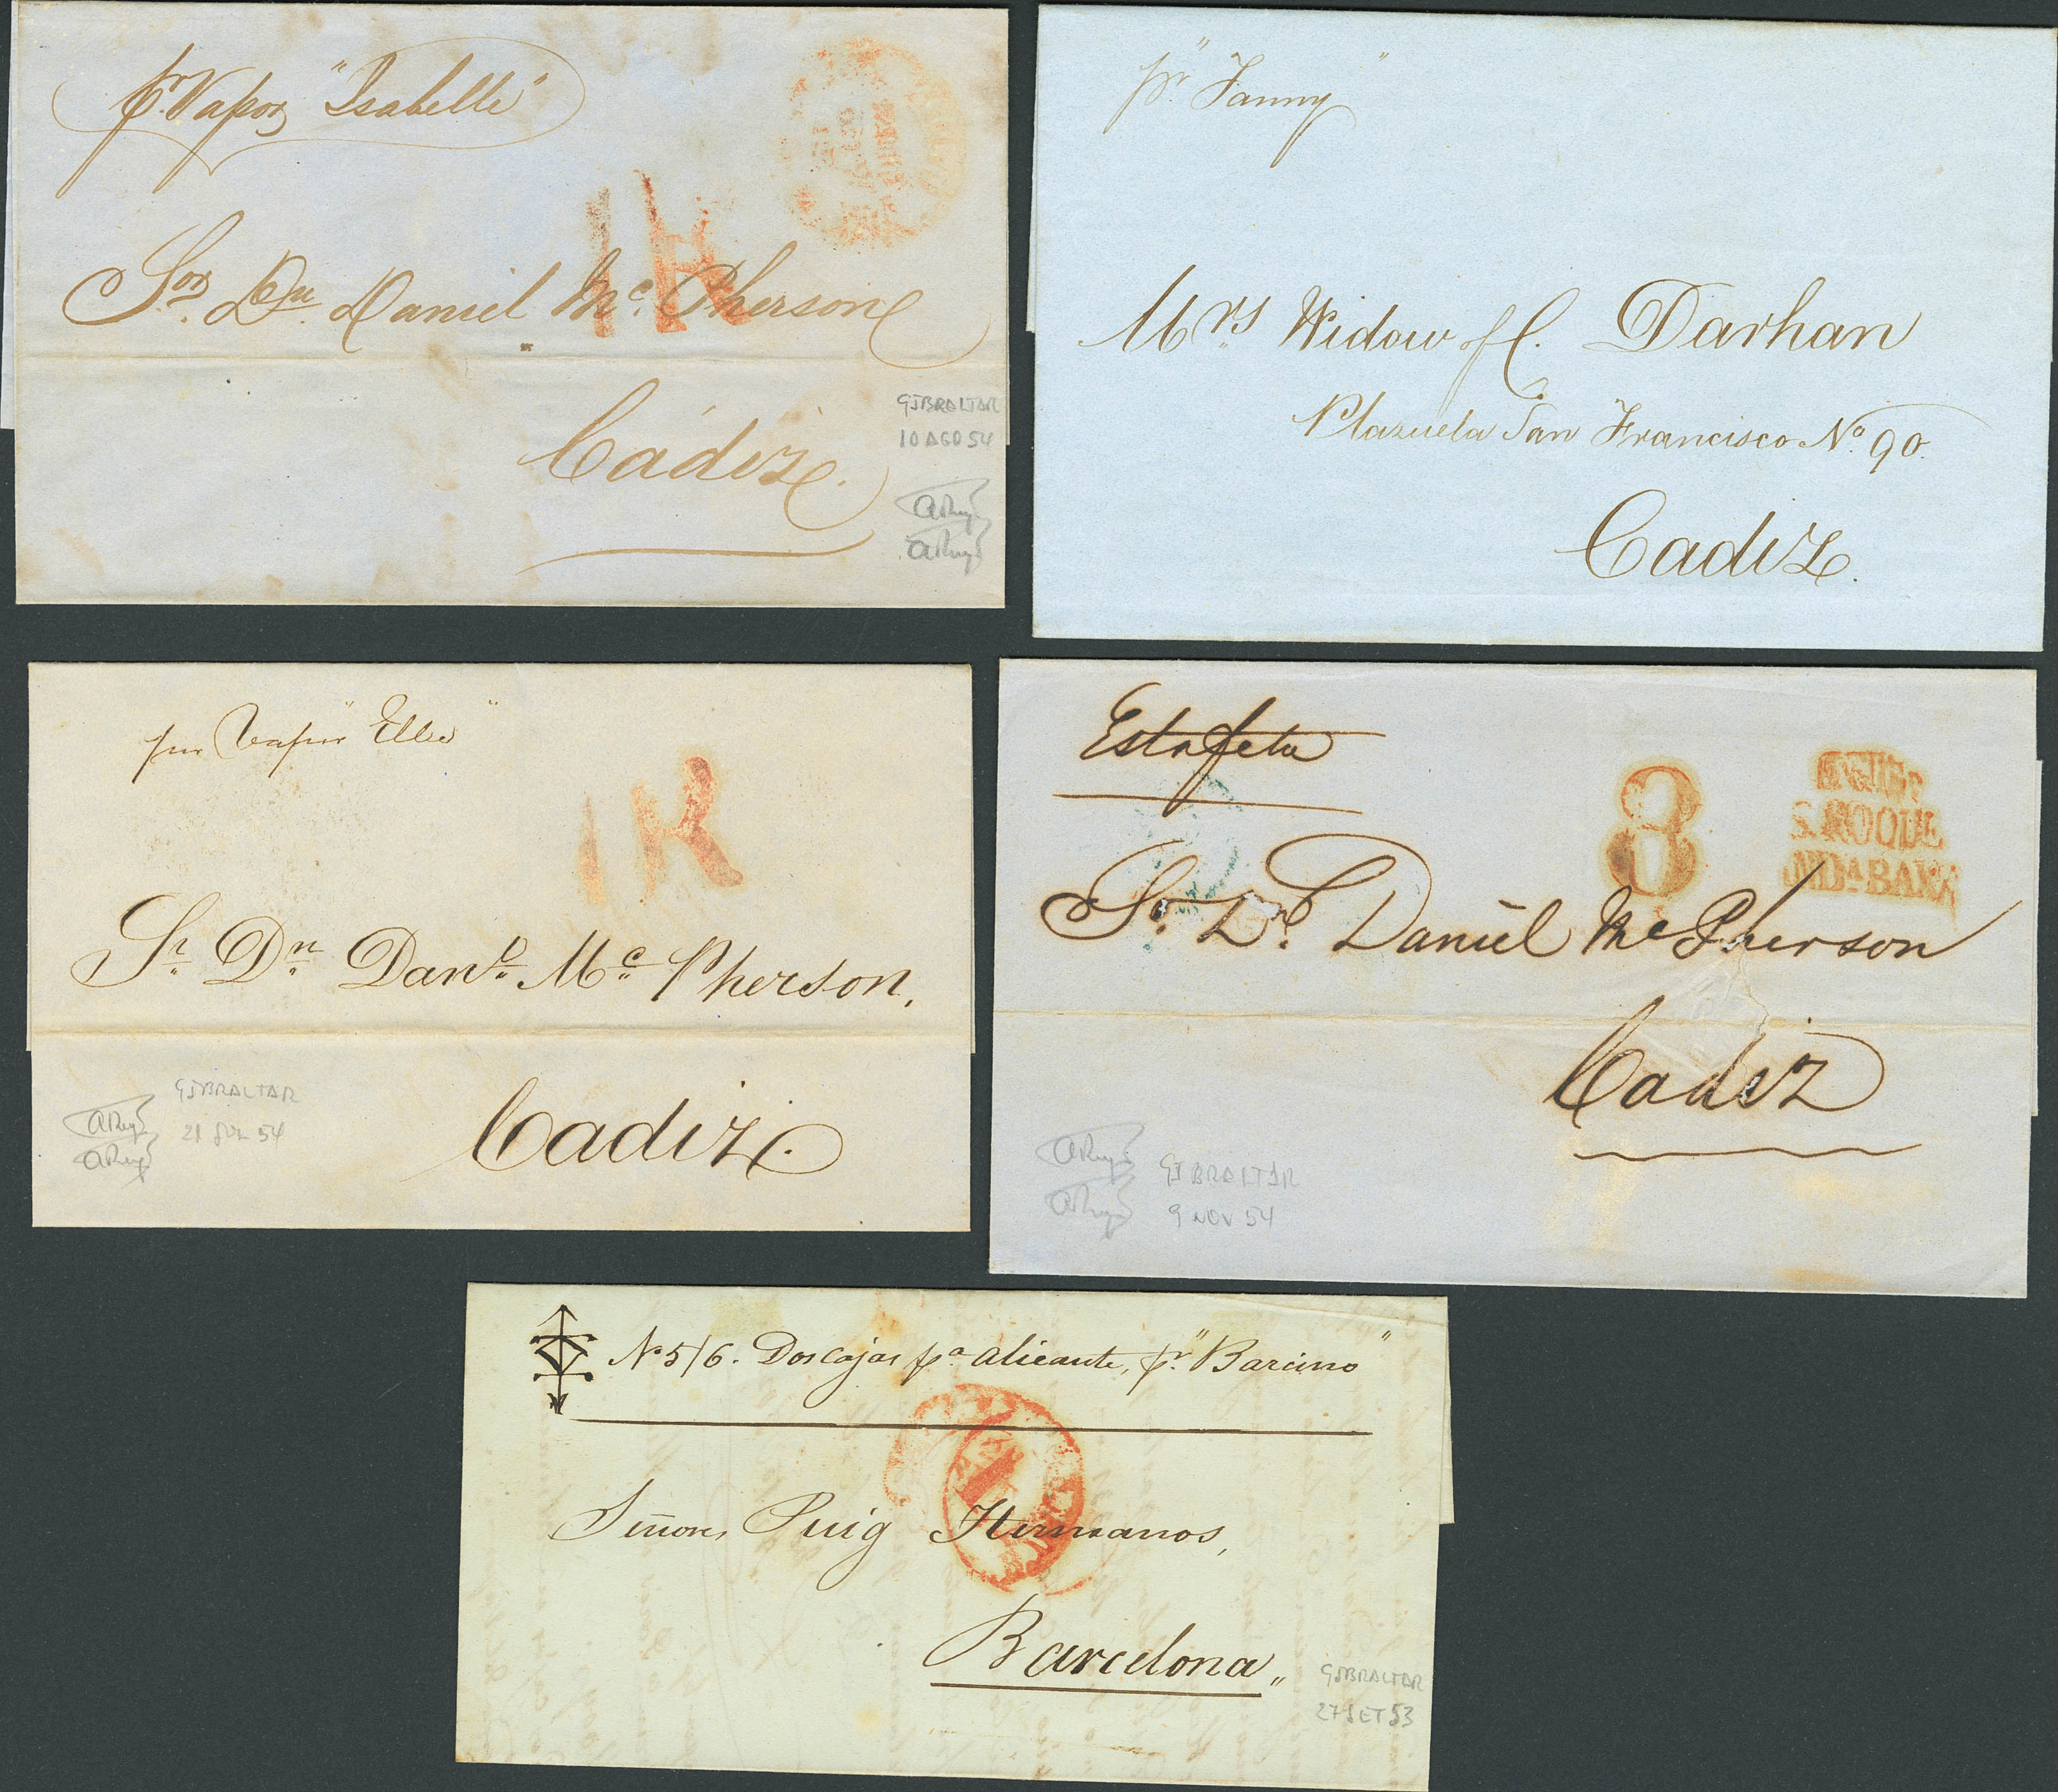 pr. Vapor "Isabelle"
1R
Sor. Dn. Daniel Mc. Pherson
Cádiz.
GIBRALTAR
10 AGO 54
pr. "Fanny"
Mrs Widow of C. Darhan
Plazuela San Francisco No. 90.
Cadiz.
por Vapor "Elba"
1R
Sr. Dn. Danl. Mc. Pherson.
Cadiz.
GIBRALTAR
21 JUL 54
Estafeta
8
S. ROQUE
ANDA BAXA
Sr. Dn. Daniel Mc Pherson
Cadiz
GIBRALTAR
9 NOV 54
No 5/6. Dos cajas pa. Alicante, pr. "Barcino"
Señores Puig Hermanos,
Barcelona,,
GIBRALTAR
27 SET 53